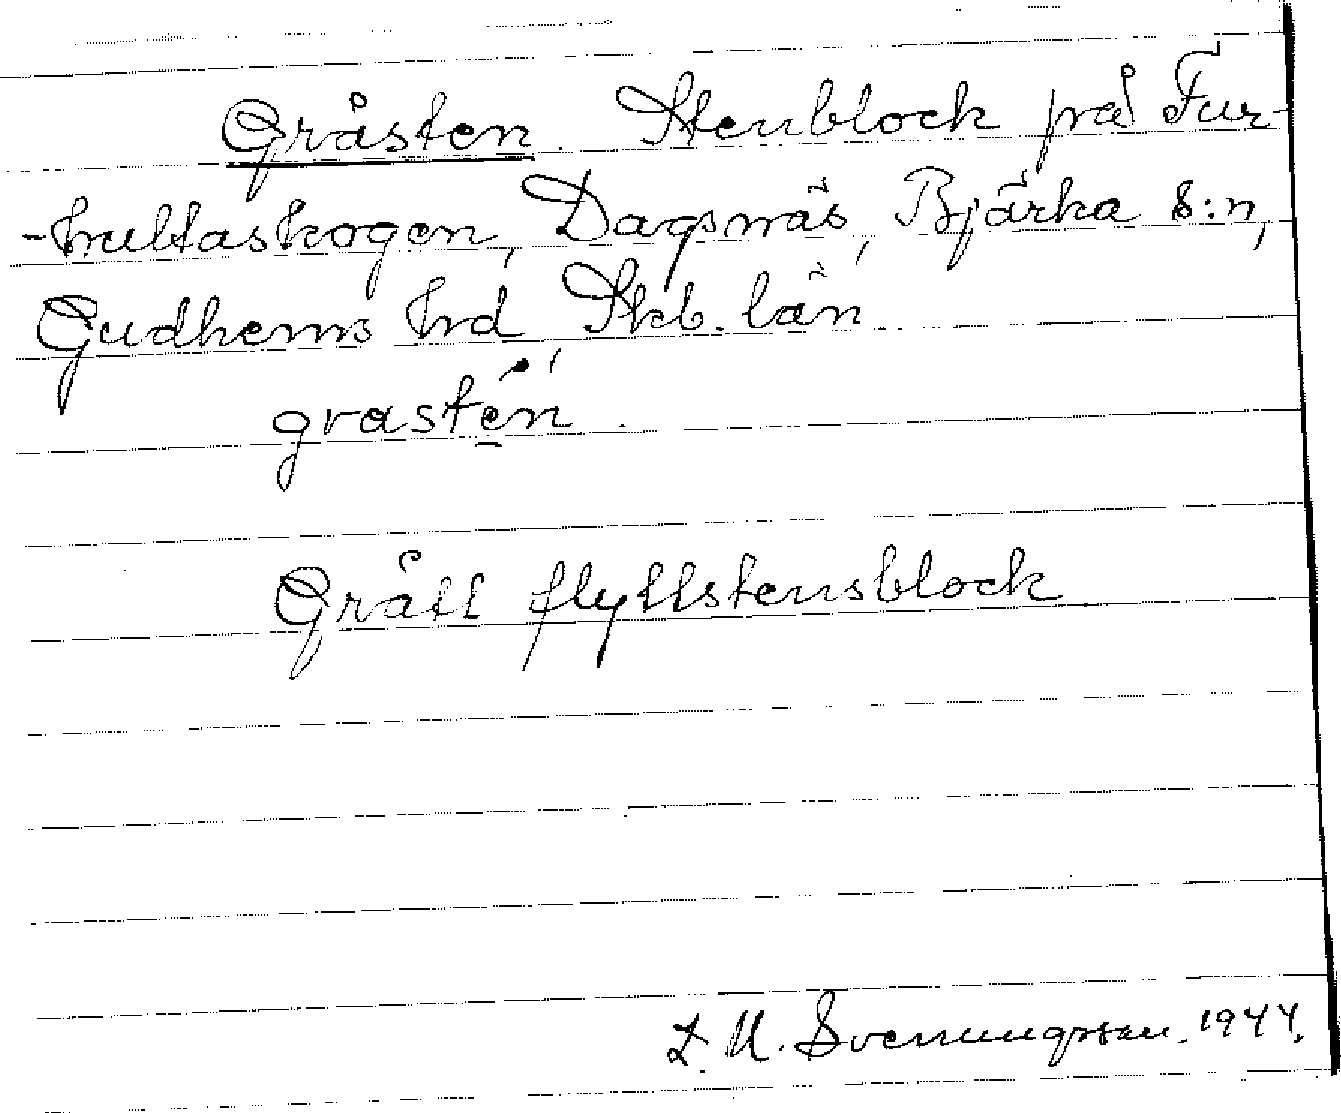 Gråsten. Stenblock på Fur-
-hultaskogen, Dagsnäs, Bjärka s:n,
Gudhems hrd, Skb. län
grastén.
Grått flyttstensblock
L. M. Svenungsson. 1944.